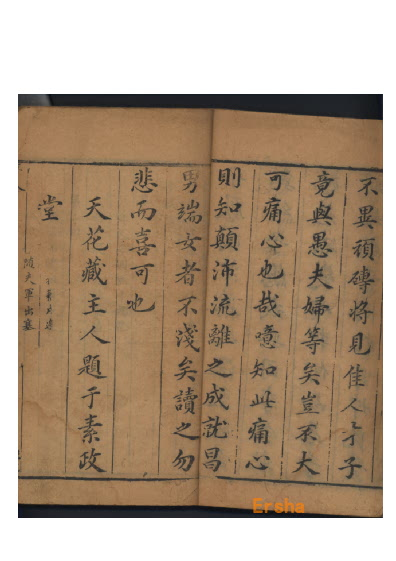 不異頑磚將見佳人才子
竟與愚夫婦等矣豈不大
可痛心也哉噫知此痛心
則知顛沛流離之成就昌
男端女者不淺矣讀之勿
悲而喜可也
天花藏主人題于素政
堂
Ersha